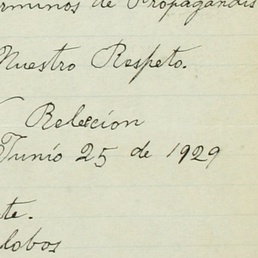 rminos de Propagandis
Nuestro Respeto.
Relección
Junio 25 de 1929
te.
lobos